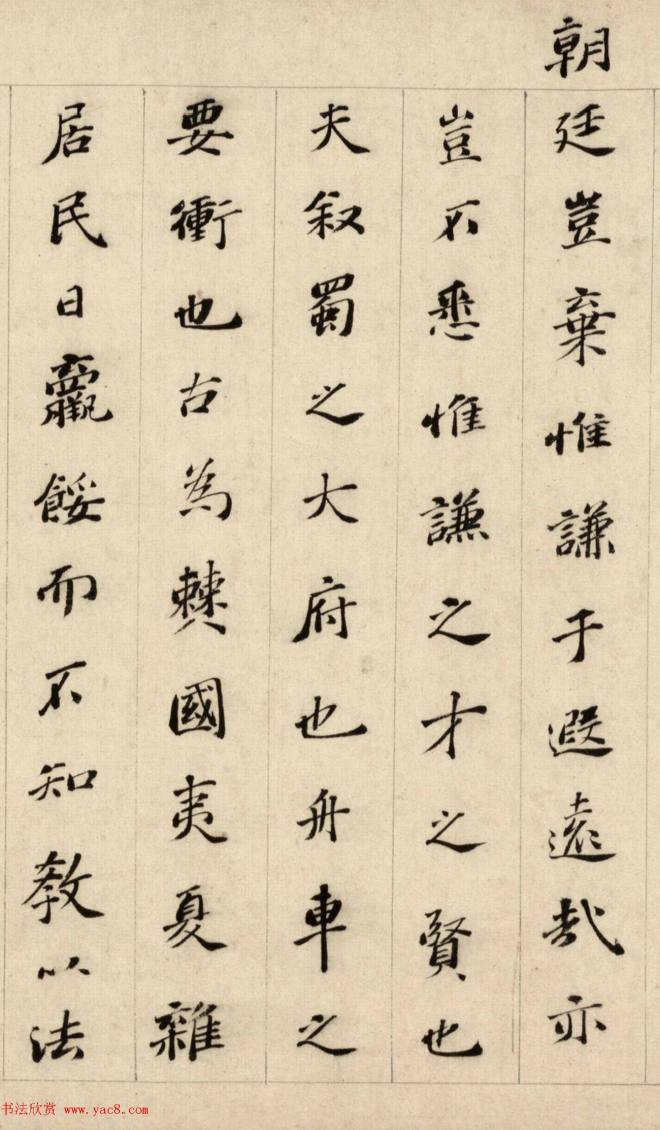 朝廷豈棄惟謙于遐遠哉亦
豈不悉惟謙之才之賢也
夫叙蜀之大府也舟車之
要衝也古為僰國夷夏雜
居民日羸餒而不知教以法
书法欣赏 www.yac8.com